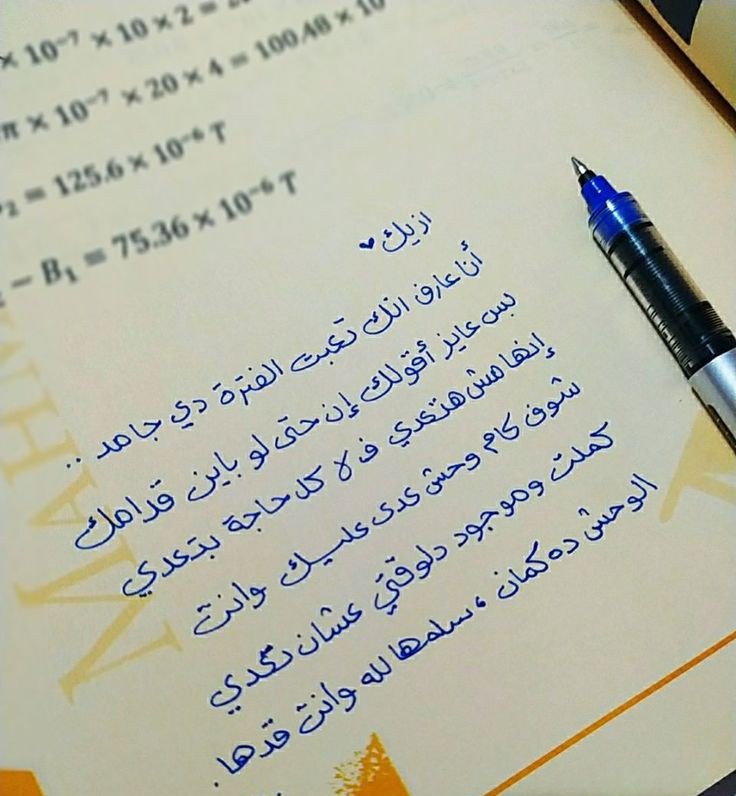 × 10⁻⁷ × 10 × 2 =
π × 10⁻⁷ × 20 × 4 = 100.48 × 10
₂ = 125.6 × 10⁻⁶ T
− B₁ = 75.36 × 10⁻⁶ T
ازيك ♥
أنا عارف انك تعبت الفترة دي جامد ..
بس عايز أقولك إن حتى لو باين قدامك
إنها مش هتعدي ف لا كل حاجة بتعدي
شوف كام وحش عدى عليك وانت
كملت وموجود دلوقتي عشان تعدي
الوحش ده كمان ، سلمها لله وانت قدها .
MAHM